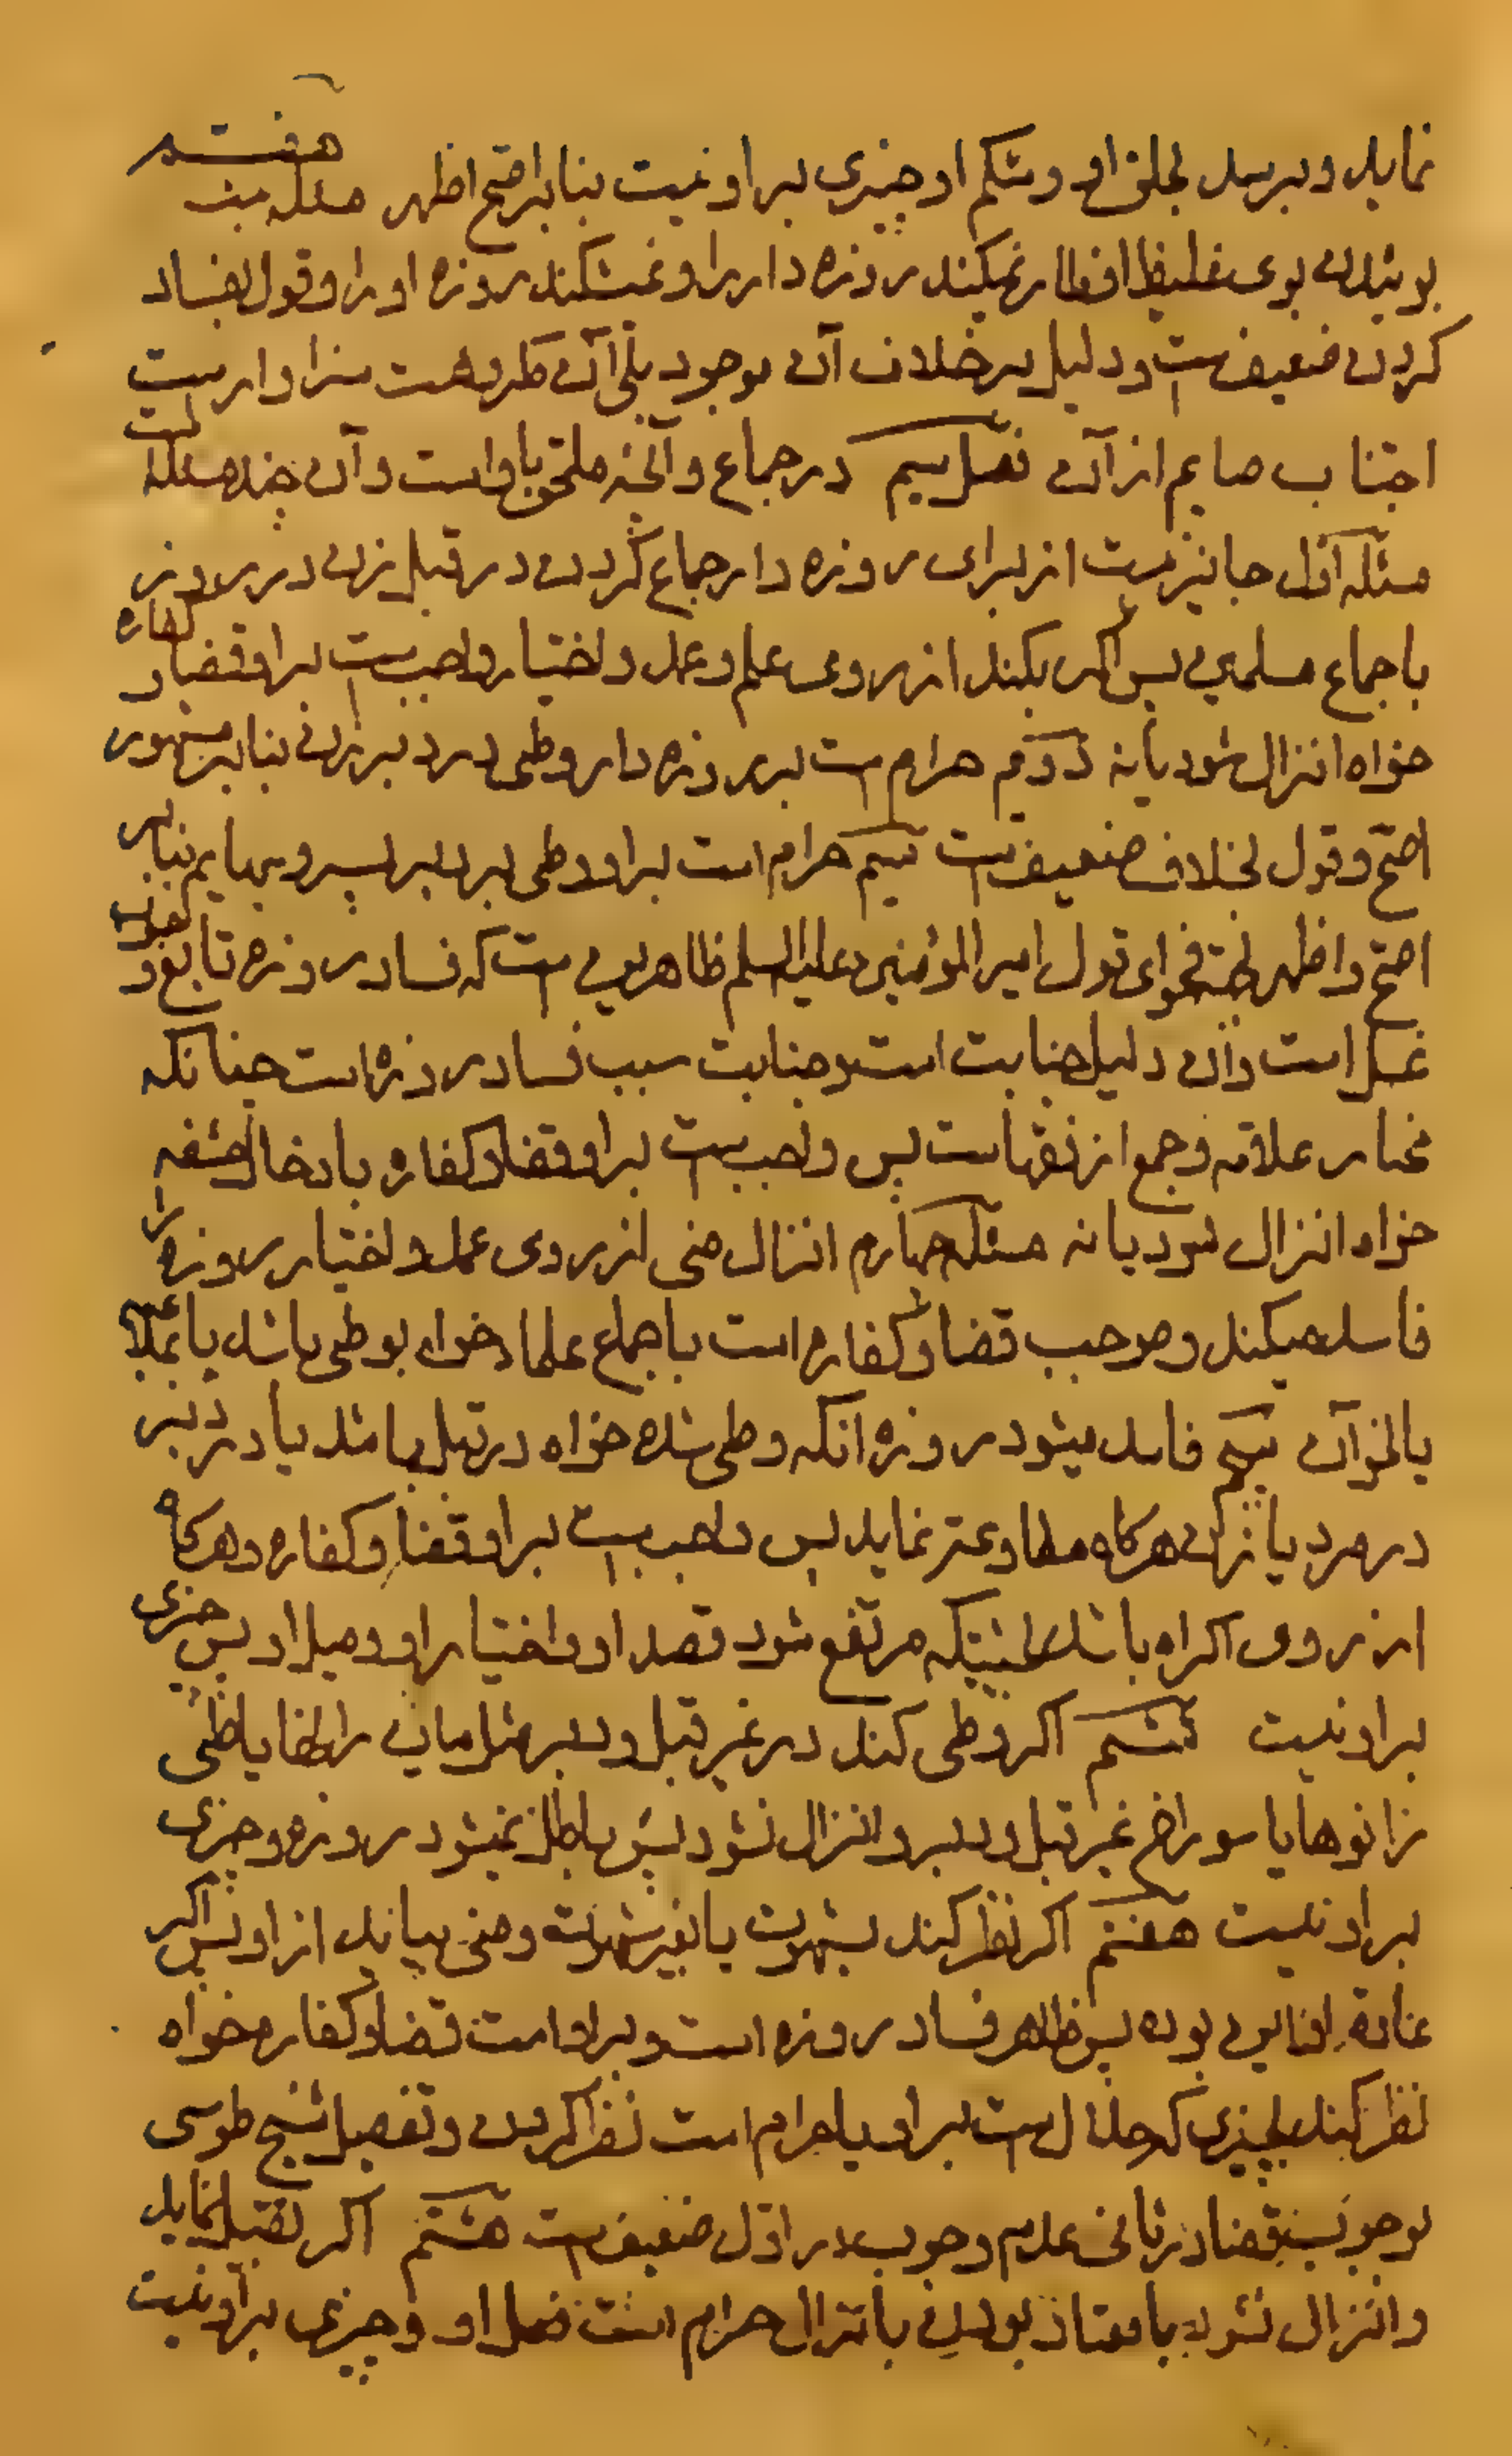 نماید و برسد بحلق او و شکم او چیزی بر او نیست بنا بر اصح اظهر مسئله بیست هفتم
بوئیدن بوی غلیظ افطار نمیکند روزه دار را و نمیشکند روزه او را و قول بفساد
کردن ضعیف است و دلیل بر خلاف آن موجود بلی آن مکروهست سزاوار است
اجتناب صایم از آن فصل سیم در جماع و آنچه ملحق باو است و آن چند مسئله است
مسئله اول جایز نیست از برای روزه دار جماع کردن در قبل زن در روز
باجماع مسلمین پس اگر بکند از روی علم و عمد و اختیار واجب است بر او قضا و کفاره
خواه انزال شود یا نه دوم حرام است بر روزه دار وطی در دبر زن بنا بر مشهور
اصح و قول بخلاف ضعیف است سیم حرام است بر او وطی در دبر پسر و بهایم بنا بر
اصح و اظهر بجهة فحوای قول امیر المؤمنین علیه السلم ظاهر این است که فساد روزه تابع وجوب
غسل است و آن دلیل جنابت است و جنابت سبب فساد روزه است چنانکه
مختار علامه و جمع از فقها است پس واجب است بر او قضا و کفاره بادخال حشفه
خواه انزال شود یا نه مسئله چهارم انزال منی از روی عمد و اختیار روزه را
فاسد میکند و موجب قضا و کفاره است باجماع علما خواه بوطی باشد یا بملاعبه
یا نحو آن پنجم فاسد میشود روزه آنکه وطی شده خواه در قبل باشد یا در دبر
در مرد یا زن هرکاه مطاوعة نماید پس واجب است بر او قضا و کفاره و هرکاه
از روی اکراه باشد بحیثیتیکه مرتفع شود قصد او و اختیار او و میل او پس چیزی
بر او نیست ششم اگر وطی کند در غیر قبل و دبر مثل میان رانها یا طی
زانوها یا سوراخ غیر قبل و دبر و انزال نشود پس باطل نمیشود روزه و چیزی
بر او نیست هفتم اگر نظر کند بشهوت یا بغیر شهوت و منی بیاید از او پس اگر
عادة او این بوده پس ظاهر فساد روزه است و بر او است قضا و کفاره خواه
نظر کند بچیزی که حلال است بر او یا حرام است نظر کردن و تفصیل شیخ طوسی
بوجوب قضا در ثانی عدم وجوب در اول ضعیف است هشتم اگر تقبیل نماید
و انزال نشود با معتاد بودن بانزال حرام است فعل او و چیزی بر او نیست